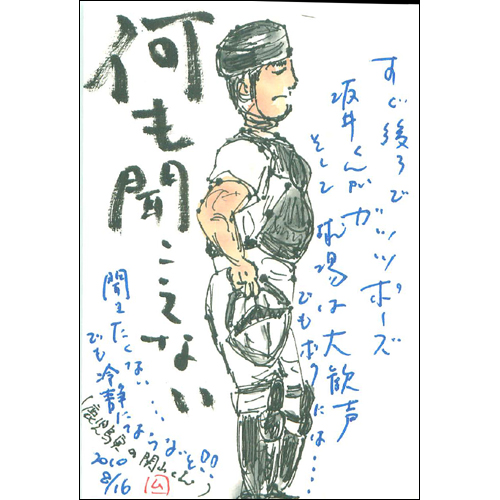 すぐ後ろで
坂井くんがガッツポーズ
そして球場は大歓声
でもボクには…
何も聞こえない
たくない……
でも冷静にならないと!!!
(鹿児島実の関山くん)
2010
8/16